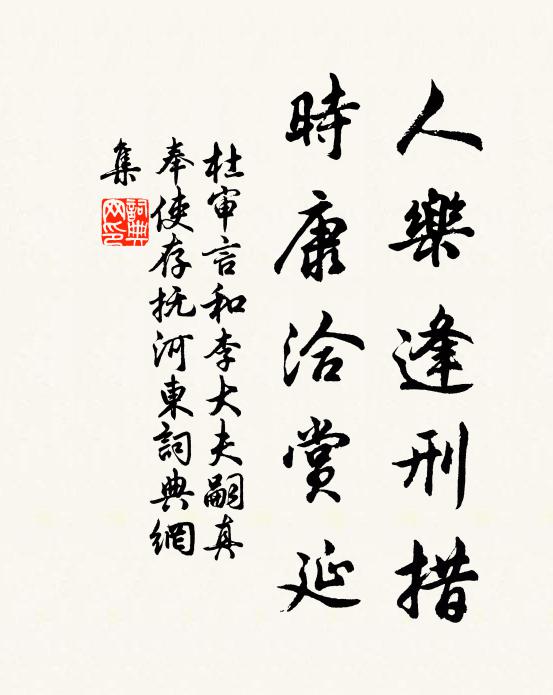 人樂逢刑措
時康洽賞延
杜审言和李大夫嗣真
奉使存抚河東詞典網
集
詞典網印